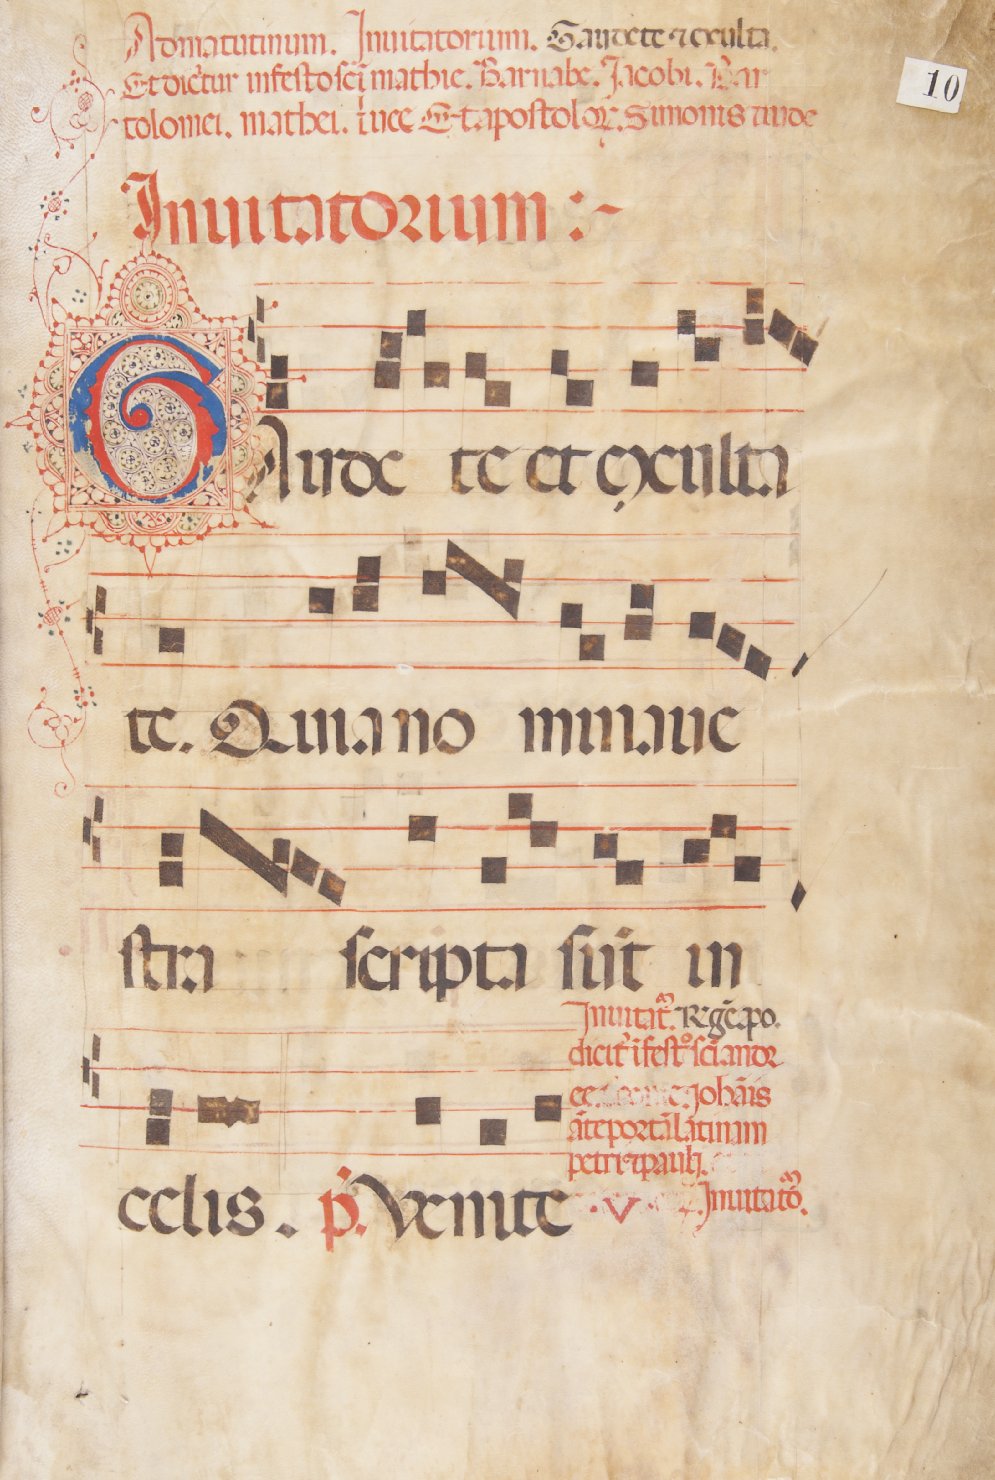 Ad matutinum. Inuitatorium. Gaudete ⁊ exulta.
Et dicet̉ur in festo sc̄i mathie. Barnabe. Jacobi. Bar
tolomei. mathei. luce Et apostoloꝝ. Simonis ⁊ iude
10
Inuitatorium :~
GAude te et exulta
te. Quia no mina ue
stra scripta sūt in
celis. p̄. Venite
Inuitat̄. Regē. apo.
dicit̉ ī festo sc̄i andr
ee. Johānis
āte portā latinam
petri ⁊ pauli.
V. Inuitato.